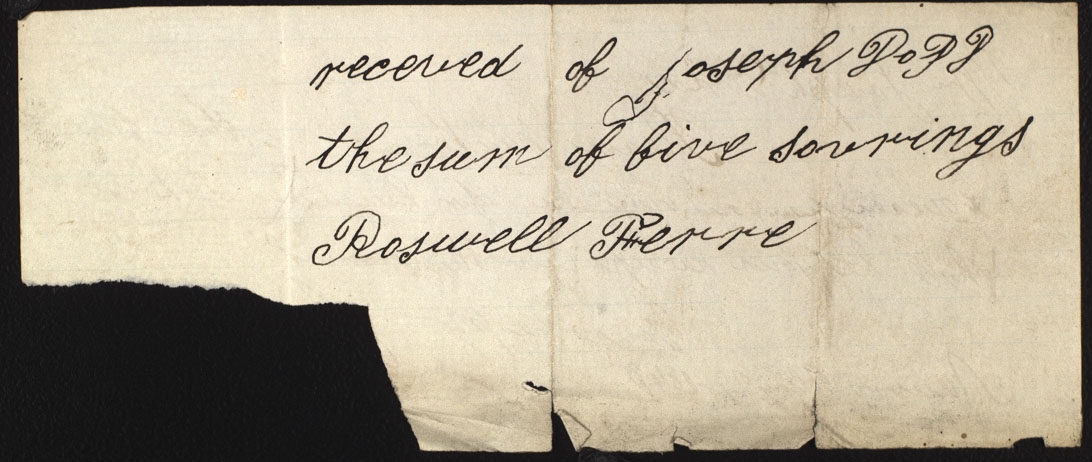 receved of Joseph PoPP
the sum of five sovrings
Roswell Ferre